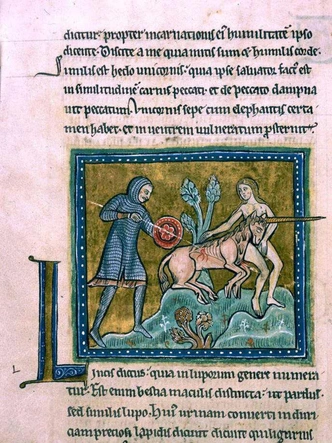 dicitur propter incarnationis eí humilitatē ipso
dicente. Discite a me quia mitis sum & humilis corde.
Similis est hedo unicornis. quia ipse saluator factꝰ est
in similitudinē carnis peccati. et de peccato dampna
uit peccatum. Unicornis sepe cum elephantis certa
men habet. et in uentrem uulneratum ꝓsternit.
L
Lincis dictus. quia in luporum genere numera
tur. Est enim bestia maculis distincta. ut pardus.
sed similis lupo. Huiꝰ urinam conuerti in duri
ciam preciosi lapidis dicunt